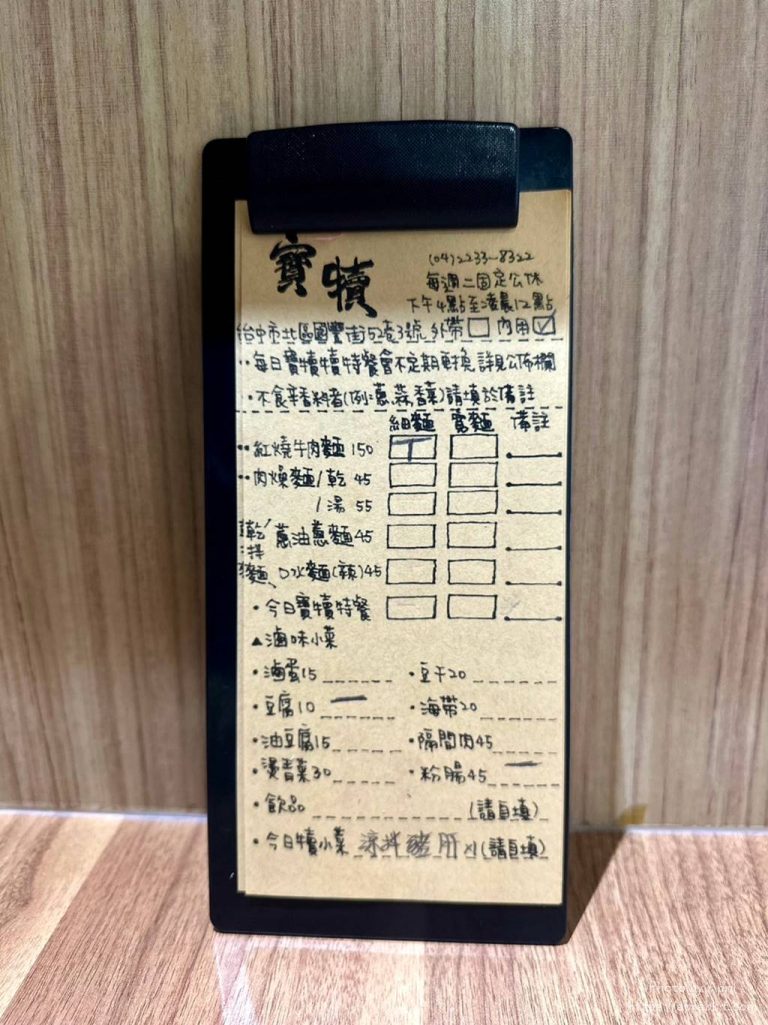 寶犢
(04)2233-8322
每週二固定公休
下午4點至凌晨12點
台中市北區國豐街52巷3號 外帶□ 內用☑
··每日寶犢犢特餐會不定期更換,詳見公佈欄
·不食辛香料者(例:蔥.蒜.香菜)請填於備註
細麵 寬麵 備註
··紅燒牛肉麵 150 丅
··肉燥麵/乾 45
/湯 55
乾拌麵、蔥油蔥麵45
口水麵(辣)45
·今日寶犢特餐
▲滷味小菜
·滷蛋15 ·豆干20
·豆腐10 一 ·海帶20
·油豆腐15 ·隔間肉45
·燙青菜30 ·粉腸45 一
·飲品 (請自填)
·今日犢小菜 涼拌豬肝 x1 (請自填)